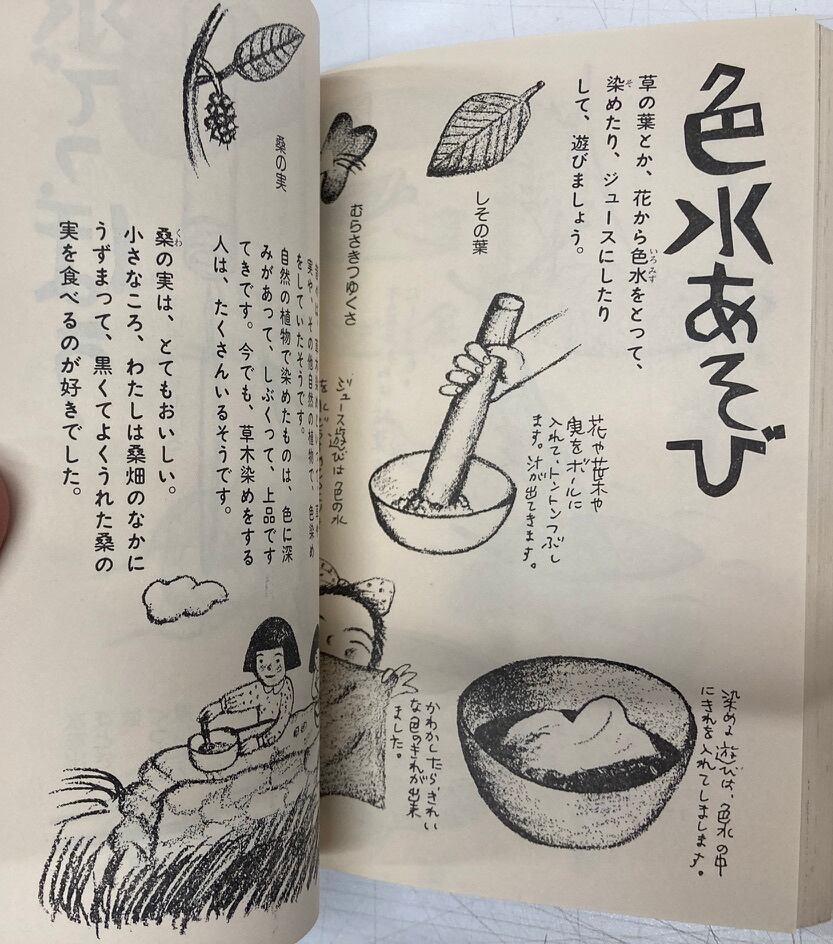 色水あそび
草の葉とか、花から色水をとって、
いろみず
染めたり、ジュースにしたり
そ
して、遊びましょう。
しその葉
むらさきつゆくさ
花や葉や
実をボールに
入れて、トントンつぶし
ます。汁が出てきます。
ジュース遊びは色の水
染める遊びは、色水の中
にきれを入れてしまします。
かわかしたらきれい
な色のきれが出来
ました。
桑の実
実や、その他自然の植物で、色染め
をしていたそうです。
自然の植物で染めたものは、色に深
みがあって、しぶくって、上品です
てきです。今でも、草木染めをする
人は、たくさんいるそうです。
桑の実は、とてもおいしい。
くわ
小さなころ、わたしは桑畑のなかに
うずまって、黒くてよくうれた桑の
実を食べるのが好きでした。